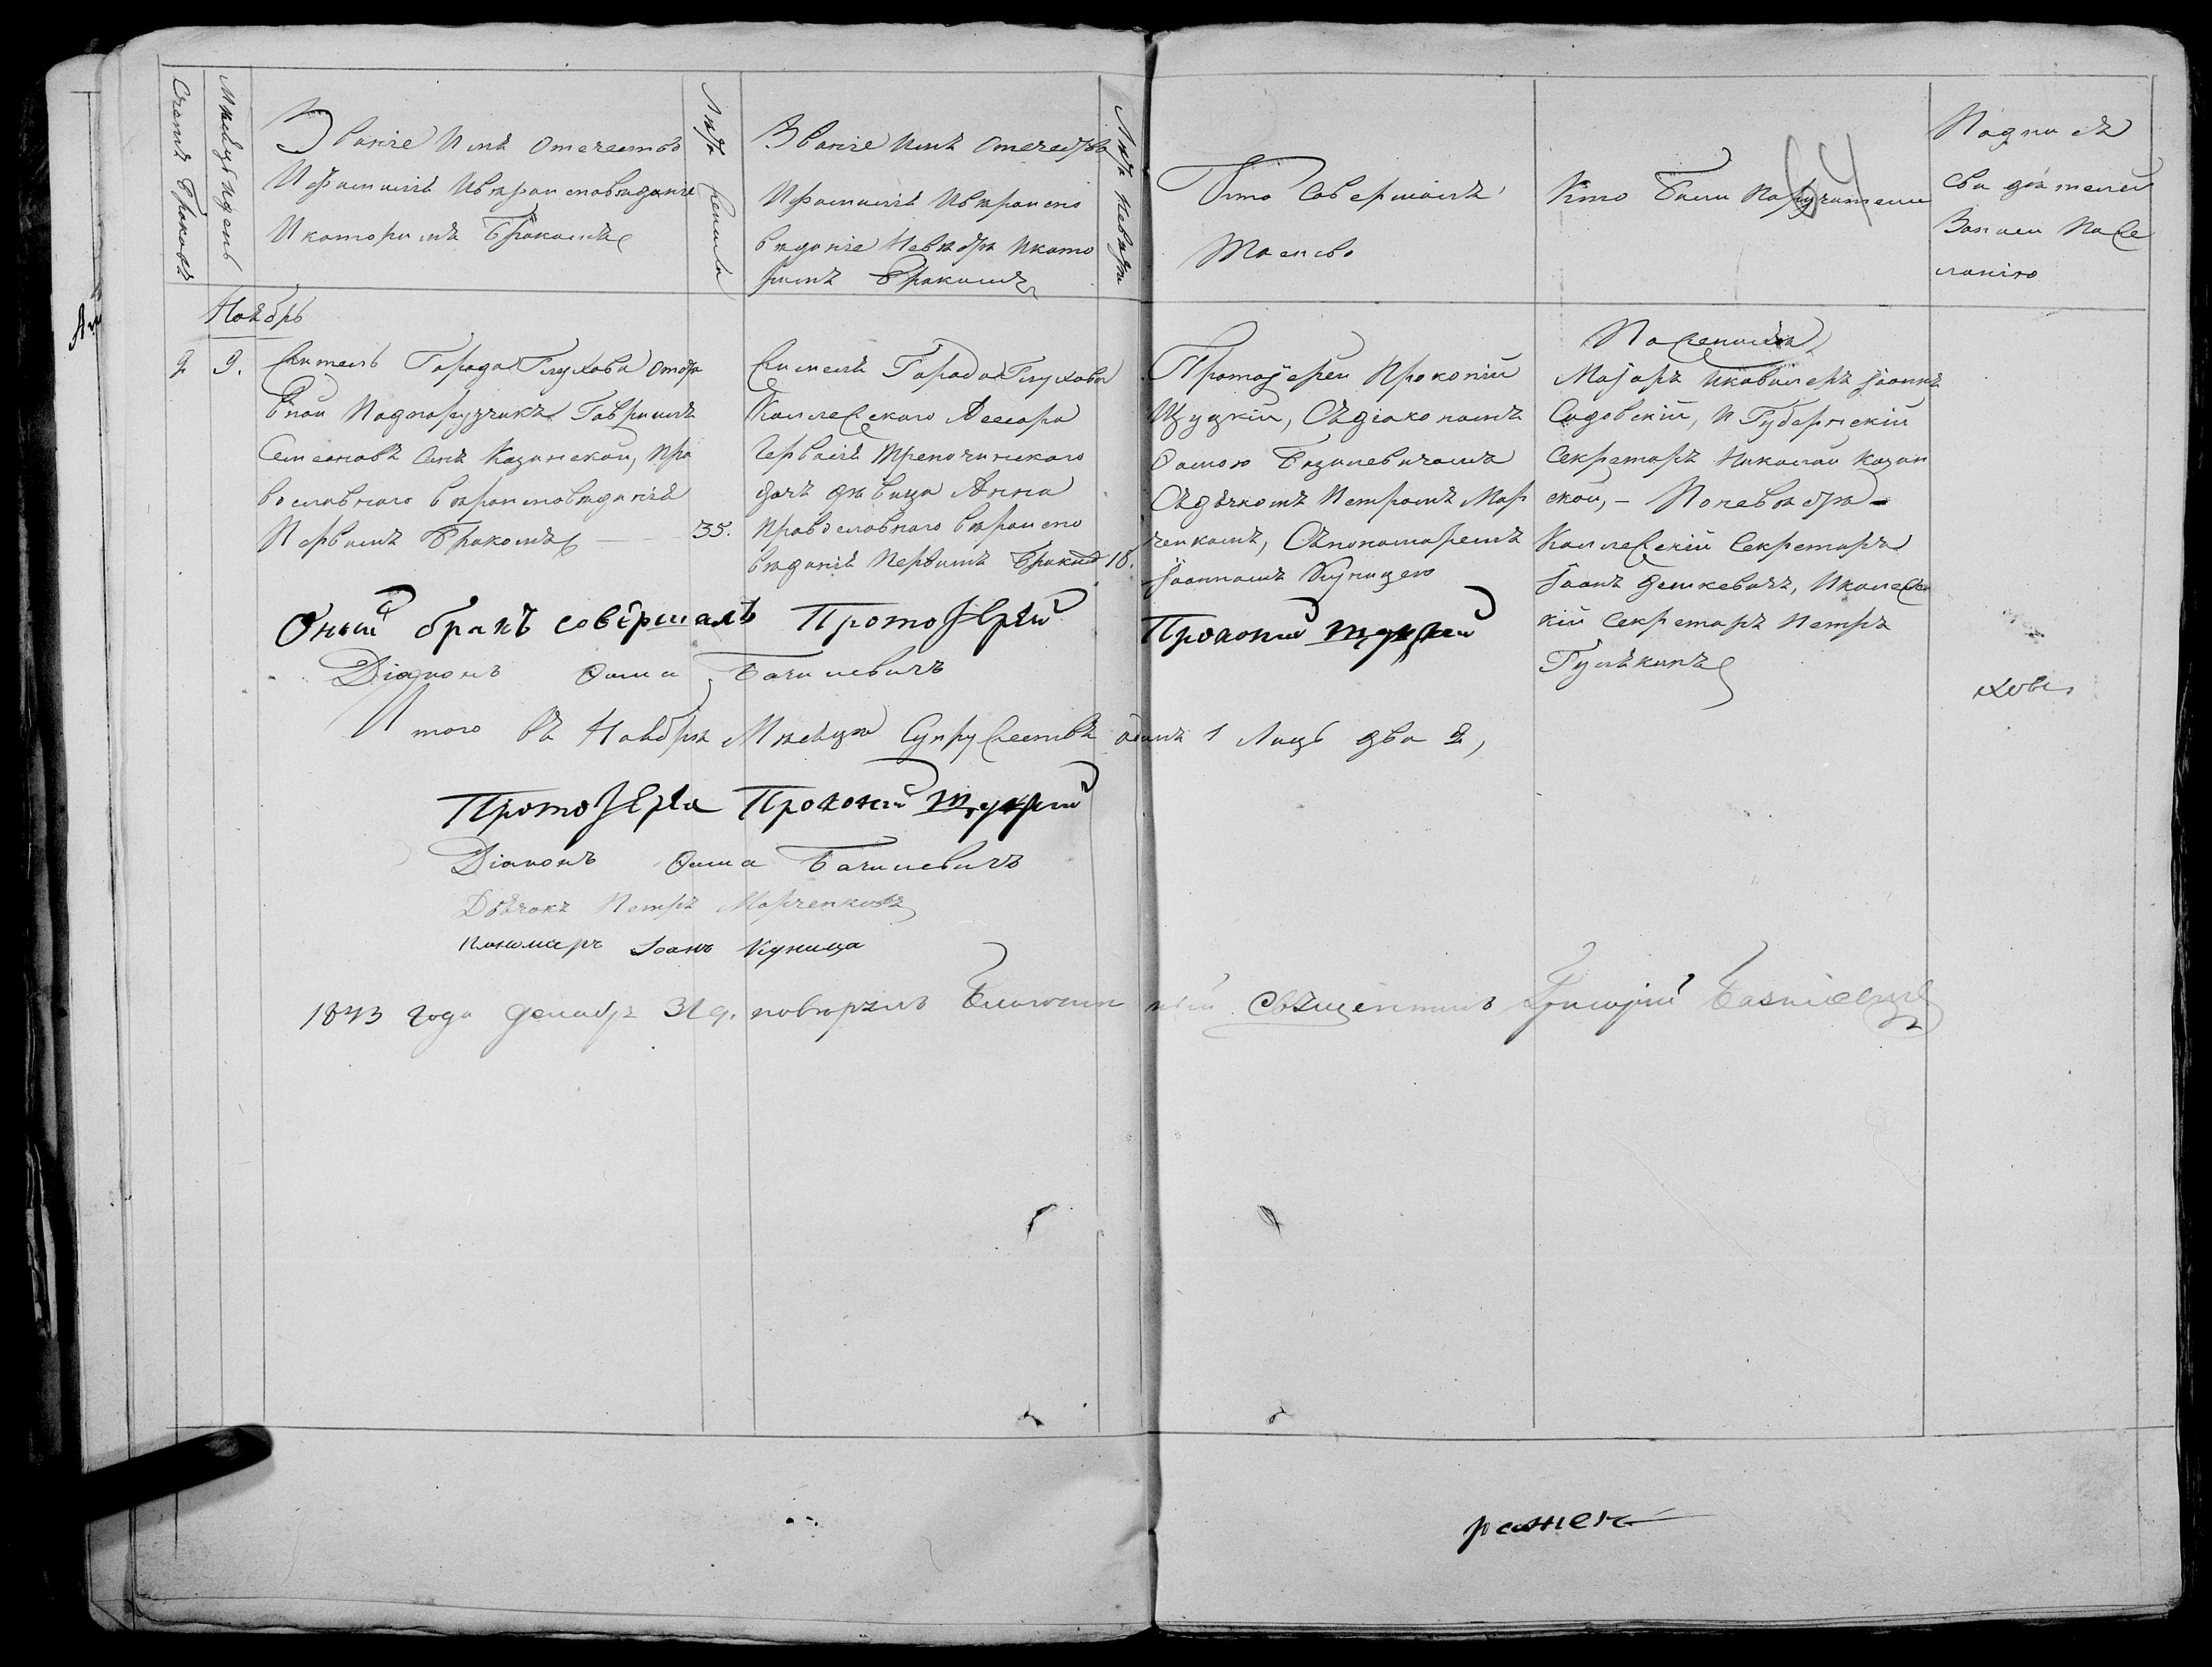 Счетъ Браковъ
Мѣсяцъ И день
Званіе Имя Отечество
И фамилія И вѣроисповѣданіе
И которымъ Бракомъ
Лѣта Жениха
Званіе Имя Отечество
И фамилія И вѣроиспо
вѣданіе Невѣсты И кото
рымъ Бракомъ
Лѣта Невѣсты
Кто Совершалъ
Таинство
Кто Были Поручители
64
Подпись
Свидѣтелей
Записи По Же
ланію
Ноябрь
2
9.
Житель Города Глухова Отста
вной Подпоручикъ Гавріилъ
Семеновъ Сынъ Казинской, Пра
вославнаго вѣроисповѣданія
Первымъ Бракомъ
35.
Жителя Города Глухова
Коллежского Асесора
Гервасія Трепочинского
дочь дѣвица Анна
Православнаго вѣроиспо
вѣданія Первымъ Бракомъ
18.
Протоіерей Прокопій
Щуцкій, Съ діакономъ
Ѳомою Базилевичемъ
Съ дячкомъ Петромъ Мар
ченкомъ, Съ пономаремъ
Іоанномъ Куницею
По Женихѣ
Маіоръ И кавалеръ Іоаннъ
Садовскій, И Губернскій
Секретарь Николай Казин
ской, - По невѣстѣ -
Коллежскій Секретарь
Іоанъ Дашкевичъ, И Колеж
кій Секретарь Петръ
Гулѣкинъ
Оный бракъ совершалъ Протоіерей Прокопій Щуцкій
Діаконъ Ѳома Базилевичъ
ховс
Итого въ Ноябрѣ Мѣсяцѣ Супружествъ одинъ 1 Лицъ два 2,
Протоіерей Прокопій Щуцкій
Діаконъ Ѳома Базилевичъ
Дьячокъ Петръ Марченковъ
Пономарь Іоанъ Куница
1843 года декабря 31 д. повѣрялъ Благочинный Священникъ Григорій Базилевичъ